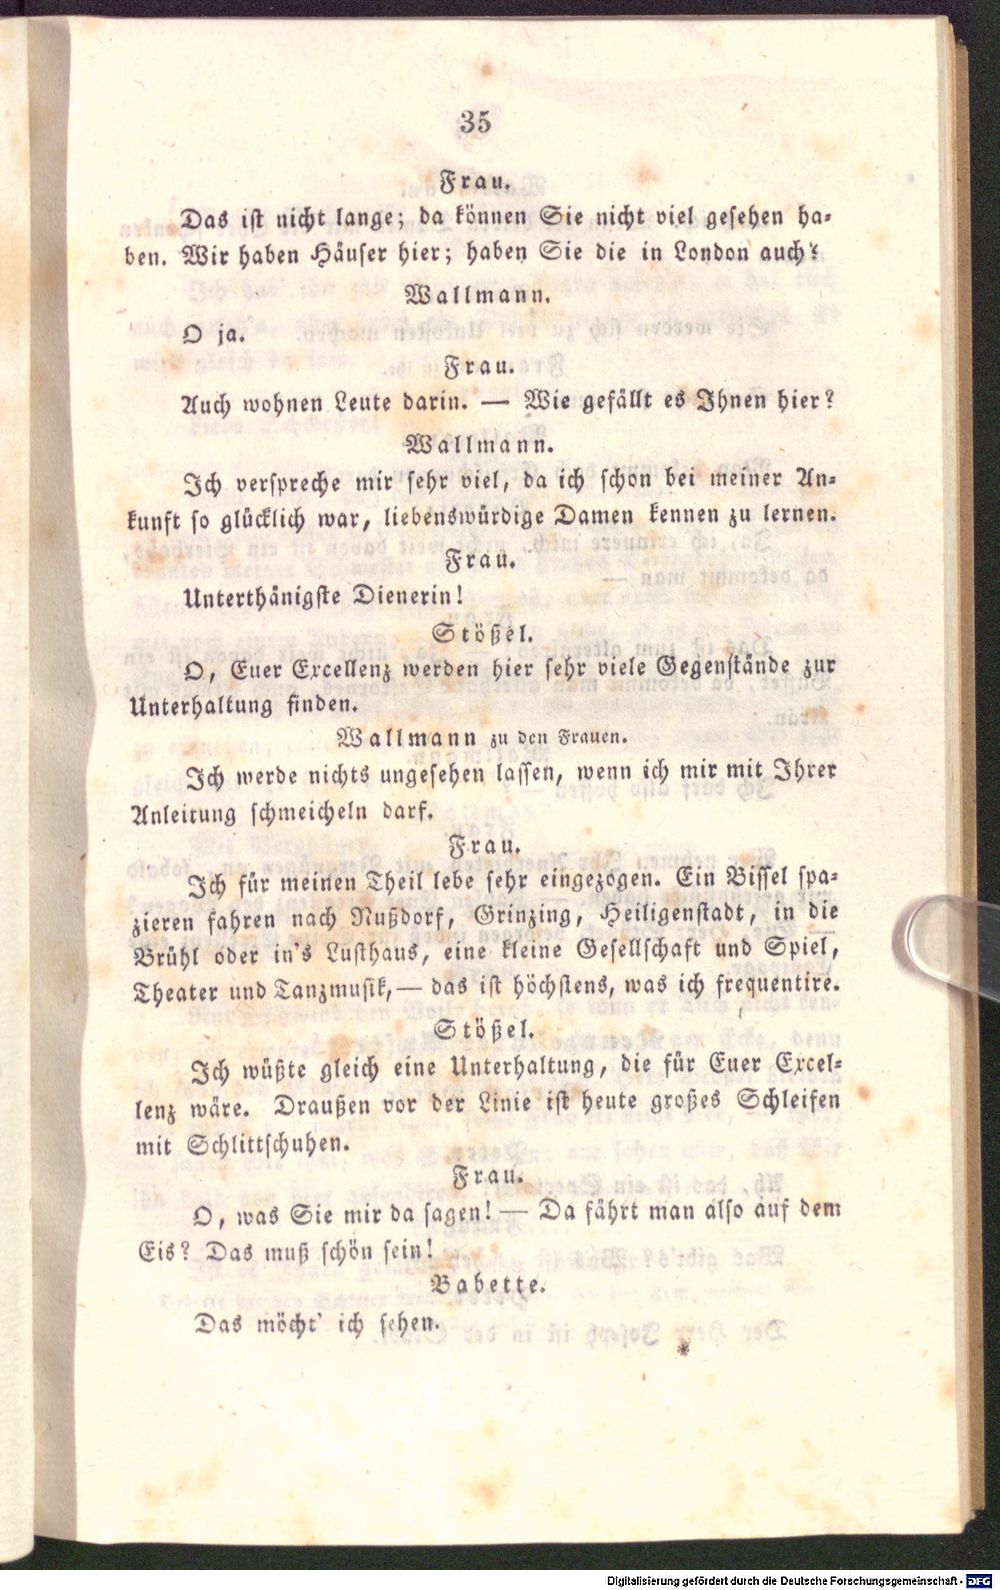 35
Frau.
Das ist nicht lange; da können Sie nicht viel gesehen ha-
ben. Wir haben Häuser hier; haben Sie die in London auch?
Wallmann.
O ja.
Frau.
Auch wohnen Leute darin. — Wie gefällt es Ihnen hier?
Wallmann.
Ich verspreche mir sehr viel, da ich schon bei meiner An-
kunft so glücklich war, liebenswürdige Damen kennen zu lernen.
Frau.
Unterthänigste Dienerin!
Stößel.
O, Euer Excellenz werden hier sehr viele Gegenstände zur
Unterhaltung finden.
Wallmann zu den Frauen.
Ich werde nichts ungesehen lassen, wenn ich mir mit Ihrer
Anleitung schmeicheln darf.
Frau.
Ich für meinen Theil lebe sehr eingezogen. Ein Bissel spa-
zieren fahren nach Nußdorf, Grinzing, Heiligenstadt, in die
Brühl oder in's Lusthaus, eine kleine Gesellschaft und Spiel,
Theater und Tanzmusik, — das ist höchstens, was ich frequentire.
Stößel.
Ich wüßte gleich eine Unterhaltung, die für Euer Excel-
lenz wäre. Draußen vor der Linie ist heute großes Schleifen
mit Schlittschuhen.
Frau.
O, was Sie mir da sagen! — Da fährt man also auf dem
Eis? Das muß schön sein!
Babette.
Das möcht' ich sehen.
*
Digitalisierung gefördert durch die Deutsche Forschungsgemeinschaft - DFG